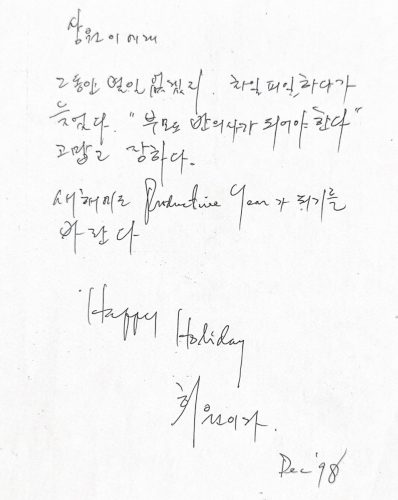 상원이에게
그동안 별일 없겠지. 차일피일 하다가
늦었다. "부모도 반의사가 되어야 한다"
고맙고 장하다.
새해에도 Productive Year가 되기를
바란다
Happy
Holiday
희원이가.
Dec '98